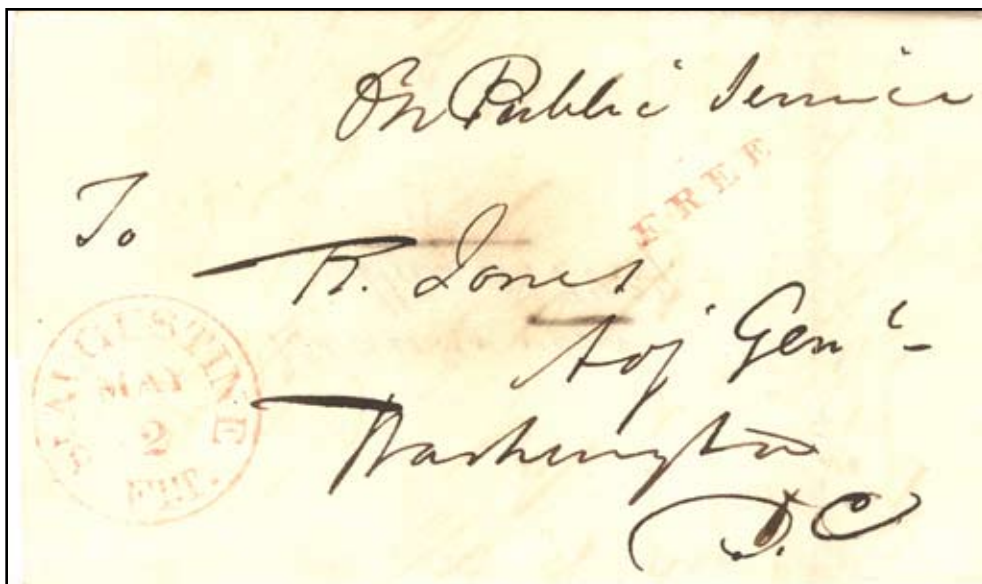 On Public Service
FREE
To
R. Jones
Adj Genl
Washington
D.C
St AUGUSTINE
MAY
2
Fl.T.